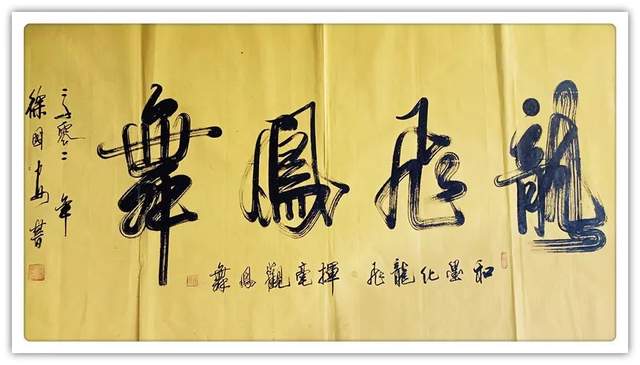 龍飛鳳舞
和墨化龍飛 揮毫觀鳳舞
二零二二年
徐国安書